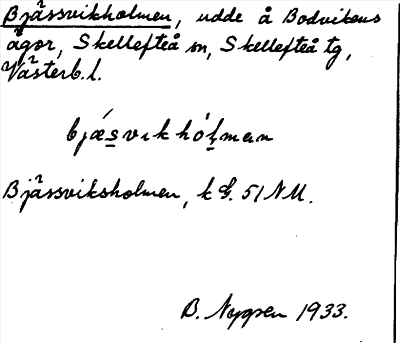 Bjässvikholmen, udde å Bodvikens
ägor, Skellefteå sn, Skellefteå tg,
Västerb. l.
bjæsvikhólman
Bjässviksholmen, k bl. 51 NU.
B. Nygren 1933.